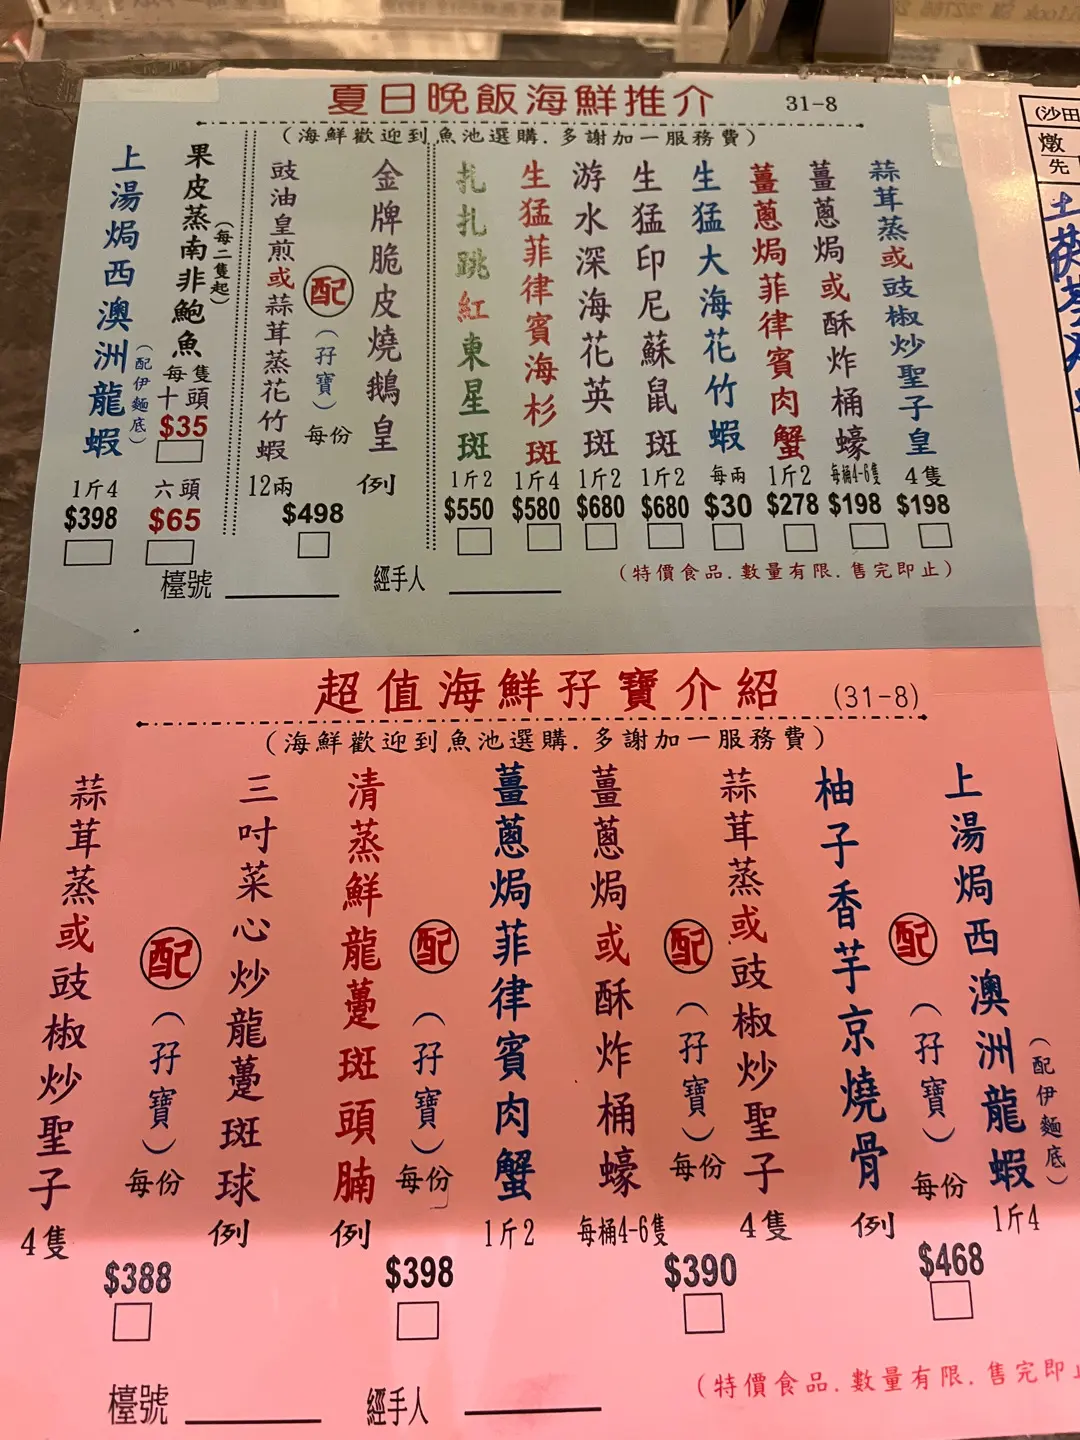 夏日晚飯海鮮推介
31-8
(海鮮歡迎到魚池選購.多謝加一服務費)
蒜茸蒸或豉椒炒聖子皇
4隻
$198
薑蔥焗或酥炸桶蠔
每桶4-6隻
$198
薑蔥焗菲律賓肉蟹
1斤2
$278
生猛大海花竹蝦
每兩
$30
生猛印尼蘇鼠斑
1斤2
$680
游水深海花英斑
1斤2
$680
生猛菲律賓海杉斑
1斤4
$580
扎扎跳紅東星斑
1斤2
$550
金牌脆皮燒鵝皇
例
配
(孖寶)
每份
豉油皇煎或蒜茸蒸花竹蝦
12兩
$498
果皮蒸南非鮑魚
(每二隻起)
每隻
十頭
$35
六頭
$65
上湯焗西澳洲龍蝦
(配伊麵底)
1斤4
$398
檯號
經手人
(特價食品.數量有限.售完即止)
超值海鮮孖寶介紹
(31-8)
(海鮮歡迎到魚池選購.多謝加一服務費)
上湯焗西澳洲龍蝦
(配伊麵底)
1斤4
配
(孖寶)
每份
柚子香芋京燒骨
例
$468
蒜茸蒸或豉椒炒聖子
4隻
配
(孖寶)
每份
薑蔥焗或酥炸桶蠔
每桶4-6隻
$390
薑蔥焗菲律賓肉蟹
1斤2
配
(孖寶)
每份
清蒸鮮龍躉斑頭腩
例
$398
三吋菜心炒龍躉斑球
例
配
(孖寶)
每份
蒜茸蒸或豉椒炒聖子
4隻
$388
檯號
經手人
(特價食品.數量有限.售完即止
(沙田
燉
先